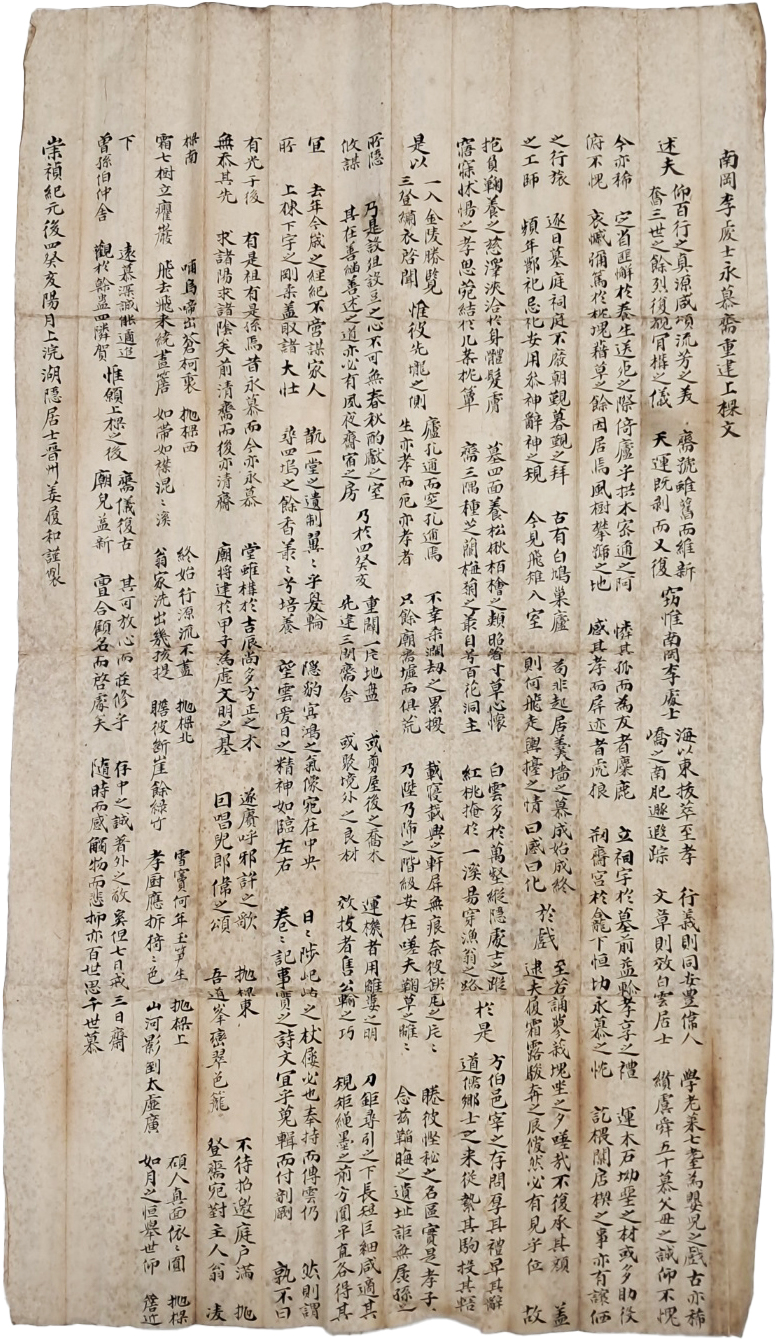 南岡李處士永慕齋重建上樑文
述夫
仰百行之眞源咸頌流芳之美
奮三世之餘烈復覩肯構之儀
齋號雖舊而維新
天運旣剝而又復
窃惟南岡李處士
海以東拔萃至孝
嶠之南肥遯遐踪
行義則同安豊偉人
文草則效白雲居士
學老萊七耋爲嬰兒之戱古亦稀
纘虞舜五十慕父母之誠仰不愧
今亦稀
俯不愧
定省匪懈於養生送死之際倚廬乎拱木密邇之阿
衰彌篤於枕塊藉草之餘因居焉風樹攀號之地
憐其孤而爲友者麋鹿
感其孝而屛迹者虎狼
立祠宇於墓前益驗孝享之禮
刱齋宮於龕下恒切永慕之忱
運木石坳堊之材或多助役
記椳闑居楔之事亦有讓価
之行旅
之工師
逐日墓庭祠庭不廢朝覲暮覲之拜
頻年祀忌祀安用參神辭神之規
古有白鳩巢廬
今見飛雉入室
苟非起居羹墻之慕成始成終
則何飛走輿儓之情曰感曰化
於戱
至若誦莪栽塊坐之夕嗟哉不復承其顔
逮夫履霜露駿奔之辰僾然必有見乎位
蓋
故
抱負鞠養之慈澤浹洽於身體髮膚
寤寐怵惕之孝思菀結於几案枕簟
墓四面養松楸栢檜之類昭管寸草心懷
齋三隅種芝蘭梅菊之叢自号百花洞主
白雲多於萬壑縱隱處士之蹤
紅桃掩於一溪易穿漁翁之路
於是
方伯邑宰之存問厚其禮卑其辭
道儒鄕士之來從縶其駒投其轄
是以
一入金陵勝覽
三登繡衣啓聞
惟彼先壠之側
廬孔邇而窆孔邇焉
生亦孝而死亦孝者
不幸桑瀾劫之累换
只餘廟齋墟而俱荒
載寢載興之軒屛無痕奈彼缺瓦之片々
乃陞乃沛之階級安在嗟夫鞠草之離々
睠彼慳秘之名區實是孝子
念玆韜晦之遺址詎無賢孫之
所隱
攸謀
乃是設俎設豆之心不可無春秋酌獻之室
其在善繼善述之道亦必有夙夜齋宿之房
乃於四癸亥
重闢一片地盤
先建三間齋舍
或剪屋後之喬木
或取境外之良材
運機者用離婁之明
效技者售公輸之巧
刀鉅尋引之下長短巨細咸適其
規矩繩墨之前方圓平直各得其
宜
所
去年今歲之經紀不啻謀家人
上棟下宇之剛柔蓋取諸大壯
翫一堂之遺制翼々乎髮輪
尋四塢之餘香叢々兮培養
隱豹冥鴻之氣像宛在中央
望雲愛日之精神如臨左右
日々陟屺岵之杖屨必也奉持而傳雲仍
卷々記事實之詩文宜乎蒐輯而付剞劂
然則謂
孰不曰
有光于後
無忝其先
有是祖有是孫焉昔永慕而今亦永慕
求諸陽求諸陰矣前清齋而後亦清齋
堂雖構於吉辰尚多方正之木
廟將建於甲子爲虛文明之基
遂賡呼邪許之歌
因唱兒郎偉之頌
拋樑東
吾道峯巒翠色籠
不待招邀庭戶滿
登齋宛對主人翁
拋
凌
樑南
霜七樹立癯巖
哺烏啼出蒼柯裏
飛去飛來繞畫簷
拋樑西
如帶如襟混々溪
終始行源流不盡
翁家洗出幾孩提
拋樑北
瞻彼斷崖餘綠竹
雪實何年玉笋生
孝廚應拆猗々色
拋樑上
山河影到太虛廣
碩人真面依々圓
如月之恒舉世仰
拋樑
簷近
下
曾孫伯仲舍
遠慕深誠能適追
觀於幹蠱四隣賀
惟願上樑之後
齋儀復古
廟皃益新
其可放心而莊修乎
宜今顧名而啓處矣
存中之誠著外之敬奚但七日戒三日齋
隨時而感觸物而悲抑亦百世思千世慕
崇禎紀元後四癸亥陽月上浣湖隱居士晉州姜履和謹製